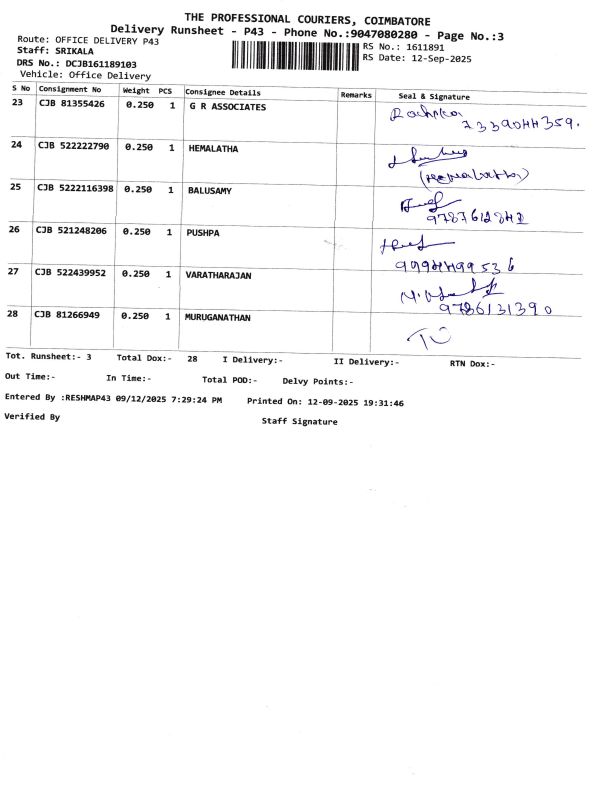 THE PROFESSIONAL COURIERS, COIMBATORE
Delivery Runsheet - P43 - Phone No.:9047080280 - Page No.:3
Route: OFFICE DELIVERY P43
RS No.: 1611891
Staff: SRIKALA
RS Date: 12-Sep-2025
DRS No.: DCJB161189103
Vehicle: Office Delivery
S No Consignment No Weight PCS Consignee Details Remarks Seal & Signature
23 CJB 81355426 0.250 1 G R ASSOCIATES
7339044359.
24 CJB 522222790 0.250 1 HEMALATHA
(Hemalatha)
25 CJB 5222116398 0.250 1 BALUSAMY
26 CJB 521248206 0.250 1 PUSHPA
27 CJB 522439952 0.250 1 VARATHARAJAN
9786131390
28 CJB 81266949 0.250 1 MURUGANATHAN
Tot. Runsheet:- 3 Total Dox:- 28 I Delivery:- II Delivery:- RTN Dox:-
Out Time:- In Time:- Total POD:- Delvy Points:-
Entered By :RESHMAP43 09/12/2025 7:29:24 PM Printed On: 12-09-2025 19:31:46
Verified By Staff Signature